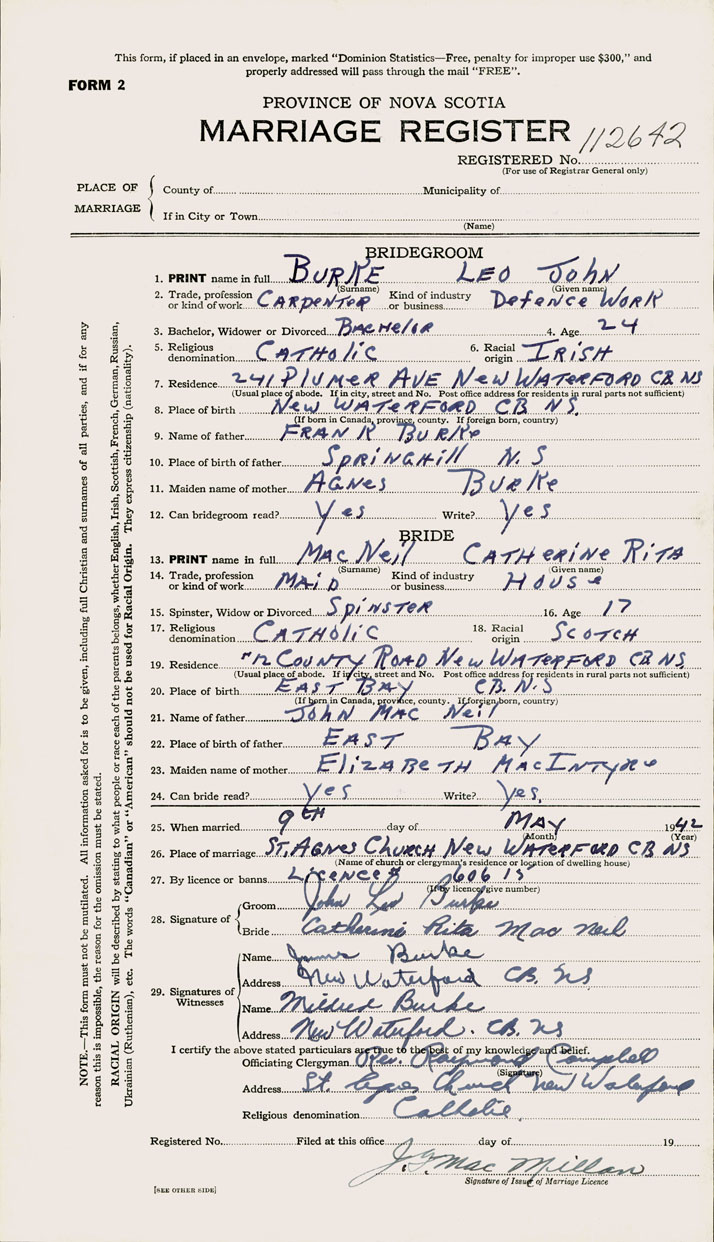 This form, if placed in an envelope, marked "Dominion Statistics—Free, penalty for improper use $300," and
properly addressed will pass through the mail "FREE".
FORM 2
PROVINCE OF NOVA SCOTIA
MARRIAGE REGISTER 112642
REGISTERED No.
(For use of Registrar General only)
PLACE OF MARRIAGE
County of Municipality of
If in City or Town
(Name)
BRIDEGROOM
1. PRINT name in full BURKE LEO JOHN
(Surname) (Given name)
2. Trade, profession or kind of work CARPENTER Kind of industry or business DEFENCE WORK
3. Bachelor, Widower or Divorced BACHELOR 4. Age 24
5. Religious denomination CATHOLIC 6. Racial origin IRISH
7. Residence 241 PLUMER AVE NEW WATERFORD CB NS
(Usual place of abode. If in city, street and No. Post office address for residents in rural parts not sufficient)
8. Place of birth NEW WATERFORD CB NS.
(If born in Canada, province, county. If foreign born, country)
9. Name of father FRANK BURKE
10. Place of birth of father SPRINGHILL N.S
11. Maiden name of mother AGNES BURKE
12. Can bridegroom read? Yes Write? Yes
BRIDE
13. PRINT name in full MAC NEIL CATHERINE RITA
(Surname) (Given name)
14. Trade, profession or kind of work MAID Kind of industry or business HOUSE
15. Spinster, Widow or Divorced SPINSTER 16. Age 17
17. Religious denomination CATHOLIC 18. Racial origin SCOTCH
19. Residence COUNTY ROAD NEW WATERFORD CB NS
(Usual place of abode. If in city, street and No. Post office address for residents in rural parts not sufficient)
20. Place of birth EAST BAY CB. N.S
(If born in Canada, province, county. If foreign born, country)
21. Name of father JOHN MAC NEIL
22. Place of birth of father EAST BAY
23. Maiden name of mother ELIZABETH MACINTYRE
24. Can bride read? Yes Write? Yes,
25. When married 9TH day of MAY 1942
(Month) (Year)
26. Place of marriage ST. AGNES CHURCH NEW WATERFORD CB NS
(Name of church or clergyman's residence or location of dwelling house)
27. By licence or banns Licence # 60615
(If by licence, give number)
28. Signature of
Groom John Leo Burke
Bride Catherine Rita Mac Neil
29. Signatures of Witnesses
Name James Burke
Address New Waterford CB. NS
Name Mildred Burke
Address New Waterford. CB. NS
I certify the above stated particulars are true to the best of my knowledge and belief.
Officiating Clergyman Rev. Raymond Campbell
(Signature)
Address St. Agnes Church New Waterford
Religious denomination Catholic.
Registered No. Filed at this office day of 19
J. Mac Millan
Signature of Issuer of Marriage Licence
[SEE OTHER SIDE]
NOTE.—This form must not be mutilated. All information asked for is to be given, including full Christian and surnames of all parties, and if for any
reason this is impossible, the reason for the omission must be stated.
RACIAL ORIGIN will be described by stating to what people or race each of the parents belongs, whether English, Irish, Scottish, French, German, Russian,
Ukrainian (Ruthenian), etc. The words "Canadian" or "American" should not be used for Racial Origin. They express citizenship (nationality).